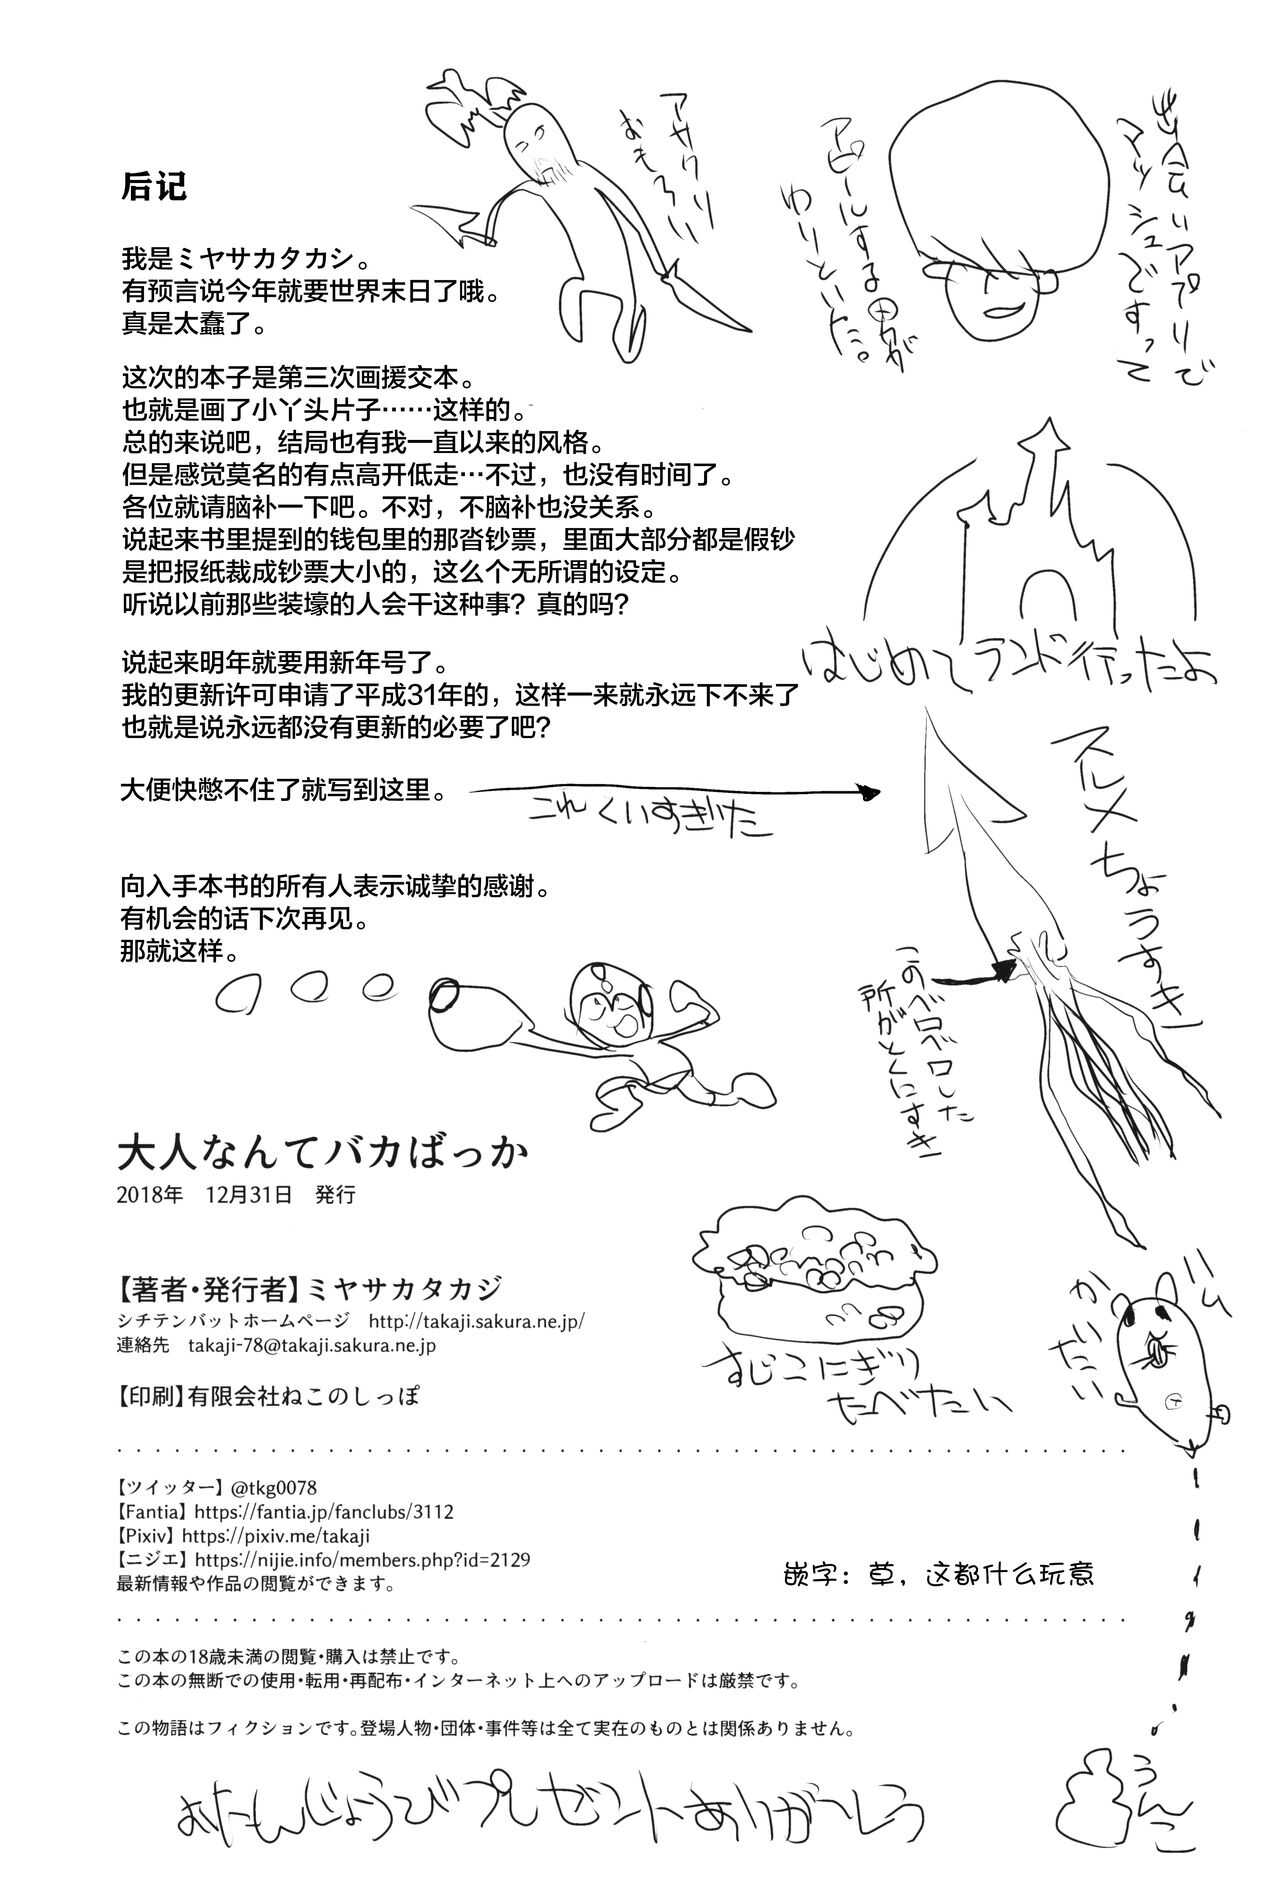 后记
我是ミヤサカタカシ。
有预言说今年就要世界末日了哦。
真是太蠢了。
这次的本子是第三次画援交本。
也就是画了小丫头片子……这样的。
总的来说吧，结局也有我一直以来的风格。
但是感觉莫名的有点高开低走…不过，也没有时间了。
各位就请脑补一下吧。不对，不脑补也没关系。
说起来书里提到的钱包里的那沓钞票，里面大部分都是假钞
是把报纸裁成钞票大小的，这么个无所谓的设定。
听说以前那些装壕的人会干这种事？真的吗？
说起来明年就要用新年号了。
我的更新许可申请了平成31年的，这样一来就永远下不来了
也就是说永远都没有更新的必要了吧？
大便快憋不住了就写到这里。
これくいすぎた
向入手本书的所有人表示诚挚的感谢。
有机会的话下次再见。
那就这样。
アサクリ
おもろい
出会いアプリで
マッシュですって
アピールする男が
ゆりといた。
はじめてランド行ったよ
スルメちょうすき
このベロベロした
所がとくにすき
大人なんてバカばっか
2018年　12月31日　発行
【著者・発行者】ミヤサカタカジ
シチテンバットホームページ　http://takaji.sakura.ne.jp/
連絡先　takaji-78@takaji.sakura.ne.jp
【印刷】有限会社ねこのしっぽ
すじこにぎり
たべたい
ハム
かいたい
【ツイッター】@tkg0078
【Fantia】https://fantia.jp/fanclubs/3112
【Pixiv】https://pixiv.me/takaji
【ニジエ】https://nijie.info/members.php?id=2129
最新情報や作品の閲覧ができます。
嵌字：草，这都什么玩意
この本の18歳未満の閲覧・購入は禁止です。
この本の無断での使用・転用・再配布・インターネット上へのアップロードは厳禁です。
この物語はフィクションです。登場人物・団体・事件等は全て実在のものとは関係ありません。
おたんじょうびプレゼントありがとう
うんこ